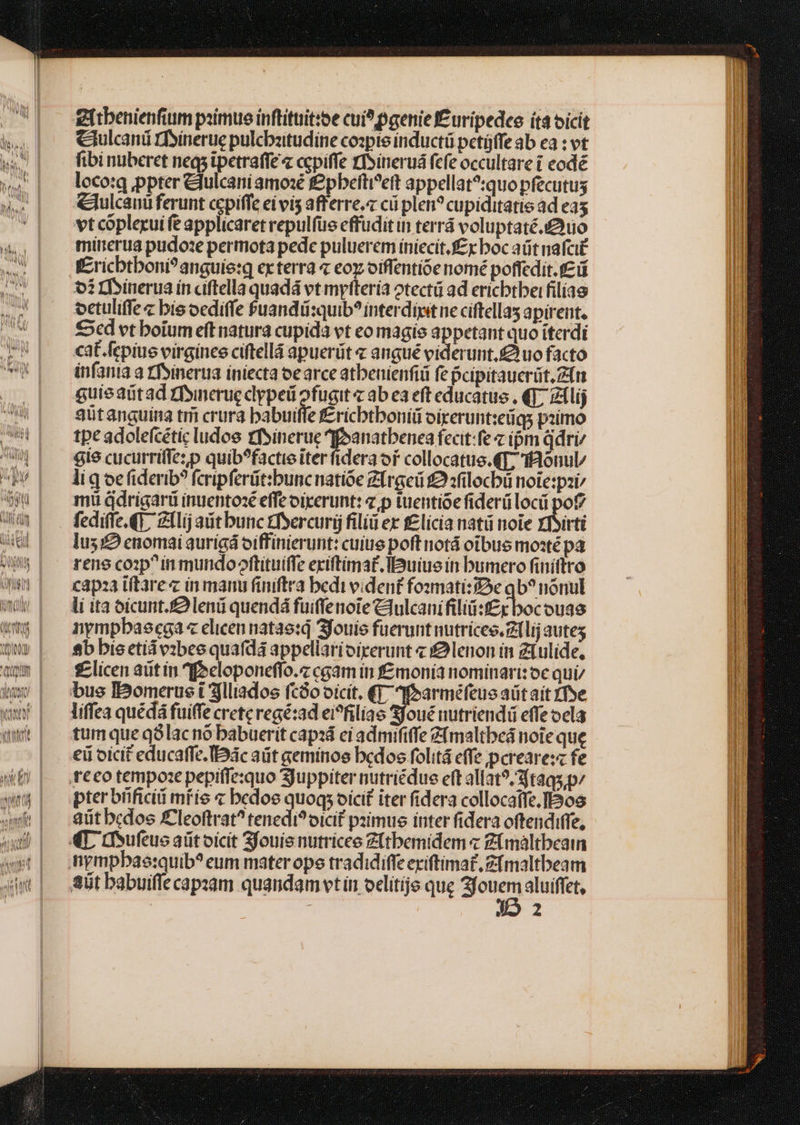 Athenienſium primus inſtituit:de cui⁹ ꝓgenie Euripedes ita dicit
Vulcanū Minerue pulchritudine corpis inductū petijſſe ab ea : vt
ſibi nuberet neqꝫ ipetraſſe ⁊ cepiſſe Mineruā ſeſe occultare ī eodē
loco:q ,ppter Vulcani amorē Ephesti⁹eſt appellat⁹:quo pſecutus
Vulcanū ferunt cepiſſe ei vis afferre.⁊ cū plen⁹ cupiditatis ad eaꝫ
vt cōplexui ſe applicaret repulſus effudit in terrā voluptatē.Quo
minerua pudore permota pede puluerem iniecit.Ex hoc aūt naſcit̄
Erichthoni⁹anguis:q ex terra ⁊ eoꝝ diſſentiōe nomē poſſedit.Eū
dr̄ Minerua in ciſtella quadā vt myſteria ɔtectū ad erichthei filias
detuliſſe ⁊ his dediſſe ſuandū:quib⁹ interdixit ne ciſtellaꝫ apirent.
Sed vt hoīum eſt natura cupida vt eo magis appetant quo īterdi
cat̄.ſepius virgines ciſtellā apuerūt ⁊ anguē viderunt.Quo facto
inſania a Minerua iniecta de arce athenienſiū ſe p̄cipitauerūt.An
guis aūt ad Minerue clypeū ɔfugit ⁊ ab ea eſt educatus . ¶ Alij
aūt anguina tm̄ crura habuiſſe Erichthoniū dixerunt:eūqꝫ primo
tpe adoleſcētię ludos Minerue Panathenea fecit:ſe ⁊ ip̄m q̄dri/
gis cucurriſſe:,p quib⁹factis iter ſidera dr̄ collocatus.¶ Nōnul/
li q de ſiderib⁹ ſcripſerūt:hunc natiōe Argeū Orſilochū noīe:pri/
mū q̄drigarū inuentorē eſſe dixerunt: ⁊,p īuentiōe ſiderū locū poſ⁹
ſediſſe.¶ Alij aūt hunc Mercurij filiū ex Clicia natū noīe Mirti
luꝫ Oenomai aurigā diffinierunt: cuius poſt notā oībus mortē pa
rens corp⁹ in mundo ɔſtituiſſe exiſtimat̄.Huius in humero ſiniſtro
capra īſtare ⁊ in manu ſiniſtra hedi vident̄ formati:De qb⁹ nōnul
li ita dicunt.Olenū quendā fuiſſe noīe Vulcani filiū:Ex hoc duas
nymphas ega ⁊ elicen natas:q̄ Jouis fuerunt nutrices.Alij auteꝫ
ab his etiā vrbes quaſdā appellari dixerunt ⁊ Olenon in Aulide,
Elicen aūt in Peloponeſſo.⁊ egam in Emonia nominari: de qui/
bus Homerus ī Illiados ſcdo dicit. ¶ Parmēſeus aūt ait Me
liſſea quēdā fuiſſe crete regē:ad ei⁹filias Jouē nutriendū eſſe dela
tum que q̄d lac nō habuerit caprā ei admiſiſſe Amaltheā noīe que
eū dicit̄ educaſſe.Hāc aūt geminos hędos ſolitā eſſe ,pcreare:⁊ ſe
re eo tempore pepiſſe:quo Juppiter nutriēdus eſt allat⁹.Itaqꝫ,p/
pter bn̄ficiū mr̄is ⁊ hedos quoqꝫ dicit̄ iter ſidera collocaſſe.Hos
aūt hędos Cleoſtrat⁹ tenedi⁹ dicit̄ primus inter ſidera oſtendiſſe,
¶ Muſeus aūt dicit Jouis nutrices Athemidem ⁊ Amaltheam
nymphas:quib⁹ eum mater ops tradidiſſe exiſtimat̄.Amaltheam
aūt habuiſſe capram quandam vt in delitijs que Jouem aluiſſet,
D 2